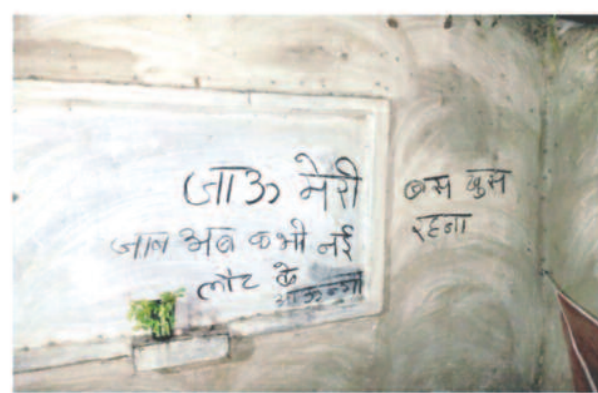 जाऊ मेरी
जान अब कभी नई
लौट के
आऊन्गा
बस खुस
रहना